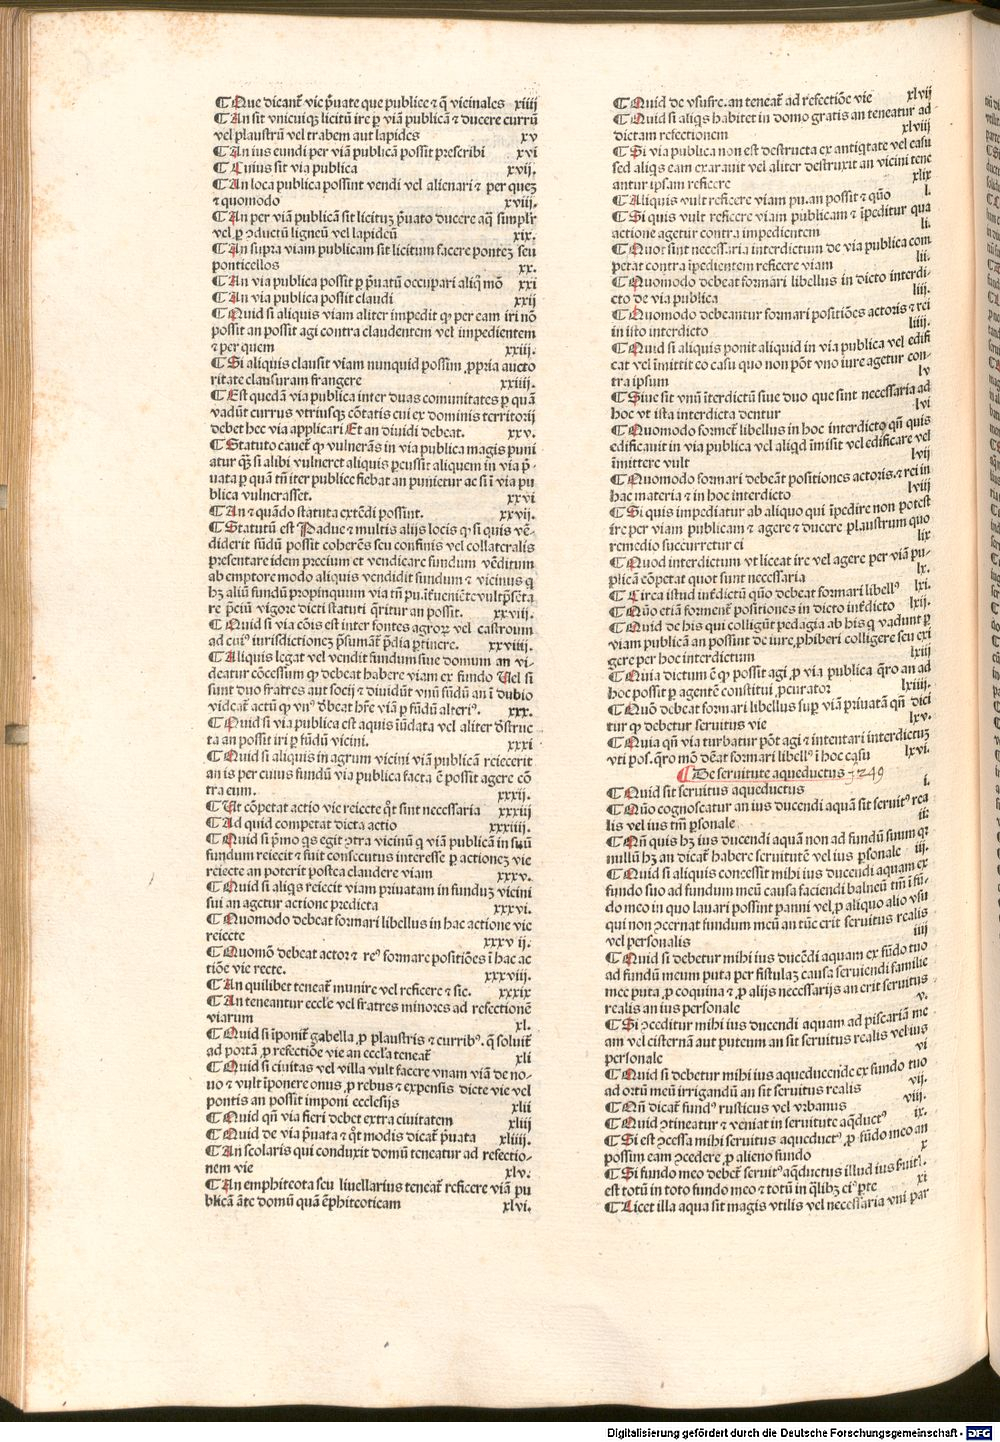 ¶ Que dicant᷑ vie p̄uate que publice ⁊ q̄ vicinales xiiij
¶ An sit vnicuiqꝫ licitū ire ꝑ viā publicā ⁊ ducere currū
vel plaustrū vel trabem aut lapides xv
¶ An ius eundi per viā publicā possit prescribi xvi
¶ Cuius sit via publica xvij.
¶ An loca publica possint vendi vel alienari ⁊ per queꝫ
⁊ quomodo xviij.
¶ An per viā publicā sit licituꝫ p̄uato ducere aq̄ simplr̄
vel ꝑ ↄductū ligneū vel lapideū xix.
¶ An supra viam publicam sit licitum facere ponteꝫ seu
ponticellos xx.
¶ An via publica possit ꝑ p̄uatū occupari aliq̊ mō xxi
¶ An via publica possit claudi xxij
¶ Quid si aliquis viam aliter impedit qꝫ per eam iri nō
possit an possit agi contra claudentem vel impedientem
⁊ per quem xxiij.
¶ Si aliquis clausit viam nunquid possim ꝓpria aucto
ritate clausuram frangere xxiiij.
¶ Est quedā via publica inter duas comunitates ꝑ quā
vadūt currus vtriusqꝫ cōtatis cui ex dominis territorij
debet hec via applicari Et an diuidi debeat. xxv.
¶ Statuto cauet᷑ ꝙ vulnerās in via publica magis puni
atur qꝫ si alibi vulneret aliquis ꝑcussit aliquem in via p̄-
uata ꝑ quā tn̄ iter publice fiebat an punietur ac si ī via pu
blica vulnerasset. xxvi
¶ An ⁊ quādo statuta extēdi possint. xxvij.
¶ Statutū est Padue ⁊ multis alijs locis ꝙ si quis vē-
diderit fūdū possit coherēs seu confinis vel collateralis
presentare idem precium et vendicare fundum vēditum
ab emptore modo aliquis vendidit fundum ⁊ vicinus q
hꝫ aliū fundū propinquum via tn̄ pu.
re p̄ciū vigore dicti statuti q̄ritur an possit. xxviij.
¶ Quid si via cōis est inter fontes agroꝝ vel castrorum
ad cui⁹ iurisdictioneꝫ p̄sumāt᷑ p̄dia ꝑtinere. xxviiij.
¶ Aliquis legat vel vendit fundum siue domum an vi-
deatur cōcessum ꝙ debeat habere viam ex fundo Uel si
sunt duo fratres aut socij ⁊ diuidūt vnū fūdū an ī dubio
videat᷑ actū ꝙ vn⁹ d̄beat hr̄e viā ꝑ fūdū alteri⁹. xxx.
¶ Quid si via publica est aquis iūdata vel aliter d̄struc
ta an possit iri ꝑ fūdū vicini. xxxi
¶ Quid si aliquis in agrum vicini viā publicā reiecerit
an is per cuius fundū via publica facta ē possit agere cō
tra eum. xxxij.
¶ Ut cōpetat actio vie reiecte q̄t sint necessaria xxxiij
¶ Ad quid competat dicta actio xxxiiij.
¶ Quid si p̄mo ꝗs egit ↄtra vicinū q viā publicā in suū
fundum reiecit ⁊ fuit consecutus interesse ꝑ actioneꝫ vie
reiecte an poterit postea claudere viam xxxv.
¶ Quid si aliꝗs reiecit viam priuatam in funduꝫ vicini
sui an agetur actione predicta xxxvi.
¶ Quomodo debeat formari libellus in hac actione vie
reiecte xxxv ij.
¶ Quomō debeat actor ⁊ re⁹ formare positiōes ī hac ac
tiōe vie recte. xxxviij.
¶ An quilibet teneat᷑ munire vel reficere ⁊ sic. xxxix
¶ An teneantur eccl̄e vel fratres minores ad refectionē
viarum xl.
¶ Quid si īponit᷑ gabella ꝓ plaustris ⁊ curribꝰ. q̄ soluit᷑
ad portā ꝓ refectiōe vie an eccl̄a teneat᷑ xli
¶ Quid si ciuitas vel villa vult facere vnam viā de no-
uo ⁊ vult īponere onus ꝓ rebus ⁊ expensis dicte vie vel
pontis an possit imponi ecclesijs xlii
¶ Quid qn̄ via fieri debet extra ciuitatem xliij
¶ Quid de via p̄uata ⁊ q̄t modis dicat᷑ p̄uata xliiij.
¶ An scolaris qui conduxit domū teneatur ad refectio-
nem vie xlv.
¶ An emphiteota seu liuellarius teneat᷑ reficere viā pu
blicā āte domū quā ēphiteoticam xlvi.
¶ Quid de vsufre. an teneat᷑ ad refectiōe vie xlvij
¶ Quid si aliꝗs habitet in domo gratis an teneatur ad
dictam refectionem xlviij
¶ Si via publica non est destructa ex antiqtate vel casu
sed aliꝗs eam exarauit vel aliter destruxit an vicini tene
antur ipsam reficere xlix
¶ Aliquis vult reficere viam pu. an possit ⁊ quō l.
¶ Si quis vult reficere viam publicam ⁊ īpeditur qua
actione agetur contra impedientem li.
¶ Quot sint necessaria interdictum de via publica com
petat contra īpedientem reficere viam lii.
¶ Quomodo debeat formari libellus in dicto interdi-
cto de via publica liij.
¶ Quomodo debeantur formari positiōes actoris ⁊ rei
in isto interdicto liiij.
¶ Quid si aliquis ponit aliquid in via publica vel edifi
cat vel īmittit eo casu quo non pōt vno iure agetur con-
tra ipsum lv
¶ Siue sit vnū īterdictū siue duo que sint necessaria ad
hoc vt ista interdicta dentur lvi
¶ Quomodo formet᷑ libellus in hoc interdicto qn̄ quis
edificauit in via publica vel aliqd īmisit vel edificare vel
īmittere vult lvij
¶ Quomodo formari debeāt positiones actoris. ⁊ rei in
hac materia ⁊ in hoc interdicto lviij
¶ Si quis impediatur ab aliquo qui īpedire non potest
ire per viam publicam ⁊ agere ⁊ ducere plaustrum quo
remedio succurretur ei lix
¶ Quod interdictum vt liceat ire vel agere per viā pu-
plicā cōpetat quot sunt necessaria lx.
¶ Circa istud int᷑dictū quō debeat formari libell⁹ lxi.
¶ Quō etiā forment᷑ positiones in dicto int᷑dicto lxij.
¶ Quid de his qui colligūt pedagia ab his q vadunt ꝑ
viam publicā an possint de iure ꝓhiberi colligere seu exi
gere per hoc interdictum lxiij
¶ Quia dictum ē ꝙ possit agi ꝓ via publica q̄ro an ad
hoc possit ꝑ agentē constitui ꝓcurator lxiiij.
¶ Quō debeat formari libellus suꝑ viā priuatā qn̄ dici
tur ꝙ debetur seruitus vie lxv.
¶ Quia qn̄ via turbatur pōt agi ⁊ intentari interdictuꝫ
vti pos. q̄ro mō dēat formari libell⁹ ī hoc casu lxvi.
¶ De seruitute aqueductus 249
¶ Quid sit seruitus aqueductus i.
¶ Quō cognoscatur an ius ducendi aquā sit seruit⁹ rea
lis vel ius tm̄ ꝑsonale ii.
¶ Qn̄ quis hꝫ ius ducendi aquā non ad fundū suum qꝛ
nullū hꝫ an dicat᷑ habere seruitutē vel ius ꝑsonale iij.
¶ Quid si aliquis concessit mihi ius ducendi aquam ex
fundo suo ad fundum meū causa faciendi balneū tm̄ ī fū-
do meo in quo lauari possint panni vel ꝓ aliquo alio vsu
qui non ↄcernat fundum meū an tūc erit seruitus realis
vel personalis iiij
¶ Quid si debetur mihi ius ducēdi aquam ex fūdo tuo
ad fundū meum puta per fistulaꝫ causa seruiendi familie
mee puta ꝓ coquina ⁊ ꝓ alijs necessarijs an erit seruitus
realis an ius personale v.
¶ Si ↄceditur mihi ius ducendi aquam ad piscariā me
am vel cisternā aut puteum an sit seruitus realis vel ius
personale vi
¶ Quid si debetur mihi ius aqueducende ex fundo tuo
ad ortū meū irrigandū an sit seruitus realis vij.
¶ Qn̄ dicat᷑ fund⁹ rusticus vel vrbanus viij.
¶ Quid ↄtineatur ⁊ veniat in seruitute aq̄duct⁹ ix.
¶ Si est ↄcessa mihi seruitus aqueduct⁹ ꝓ fūdo meo an
possim eam ↄcedere ꝓ alieno fundo x
¶ Si fundo meo debet᷑ seruit⁹ aq̄ductus illud ius
est totū in toto fundo meo ⁊ totū in q̄libꝫ ei⁹ ꝑte xi
¶ Licet illa aqua sit magis vtilis vel necessaria vni par
Digitalisierung gefördert durch die Deutsche Forschungsgemeinschaft - DFG